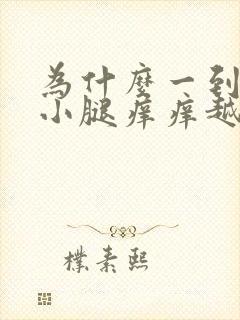 為什麼一到
小腿痒痒越
樸素熙